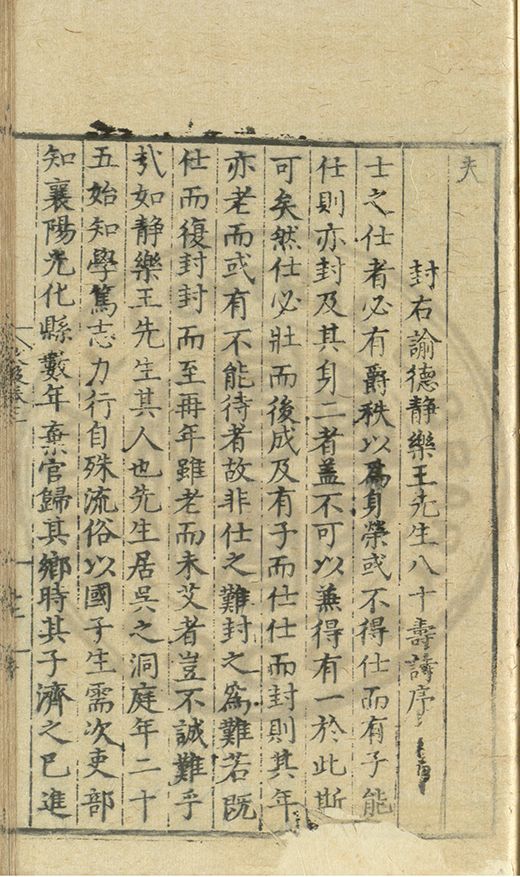 夫
封右諭德靜樂王先生八十壽詩序
士之仕者必有爵秩以爲身榮或不得仕而有子能
仕則亦封及其身二者盖不可以兼得有一於此斯
可矣然仕必壯而後成及有子而仕仕而封則其年
亦老而或有不能待者故非仕之難封之爲難若既
仕而復封封而至再年雖老而未艾者豈不誠難乎
㢤如靜樂王先生其人也先生居吳之洞庭年二十
五始知學篤志力行自殊流俗以國子生需次吏部
知襄陽光化縣數年棄官歸其鄉時其子濟之已進